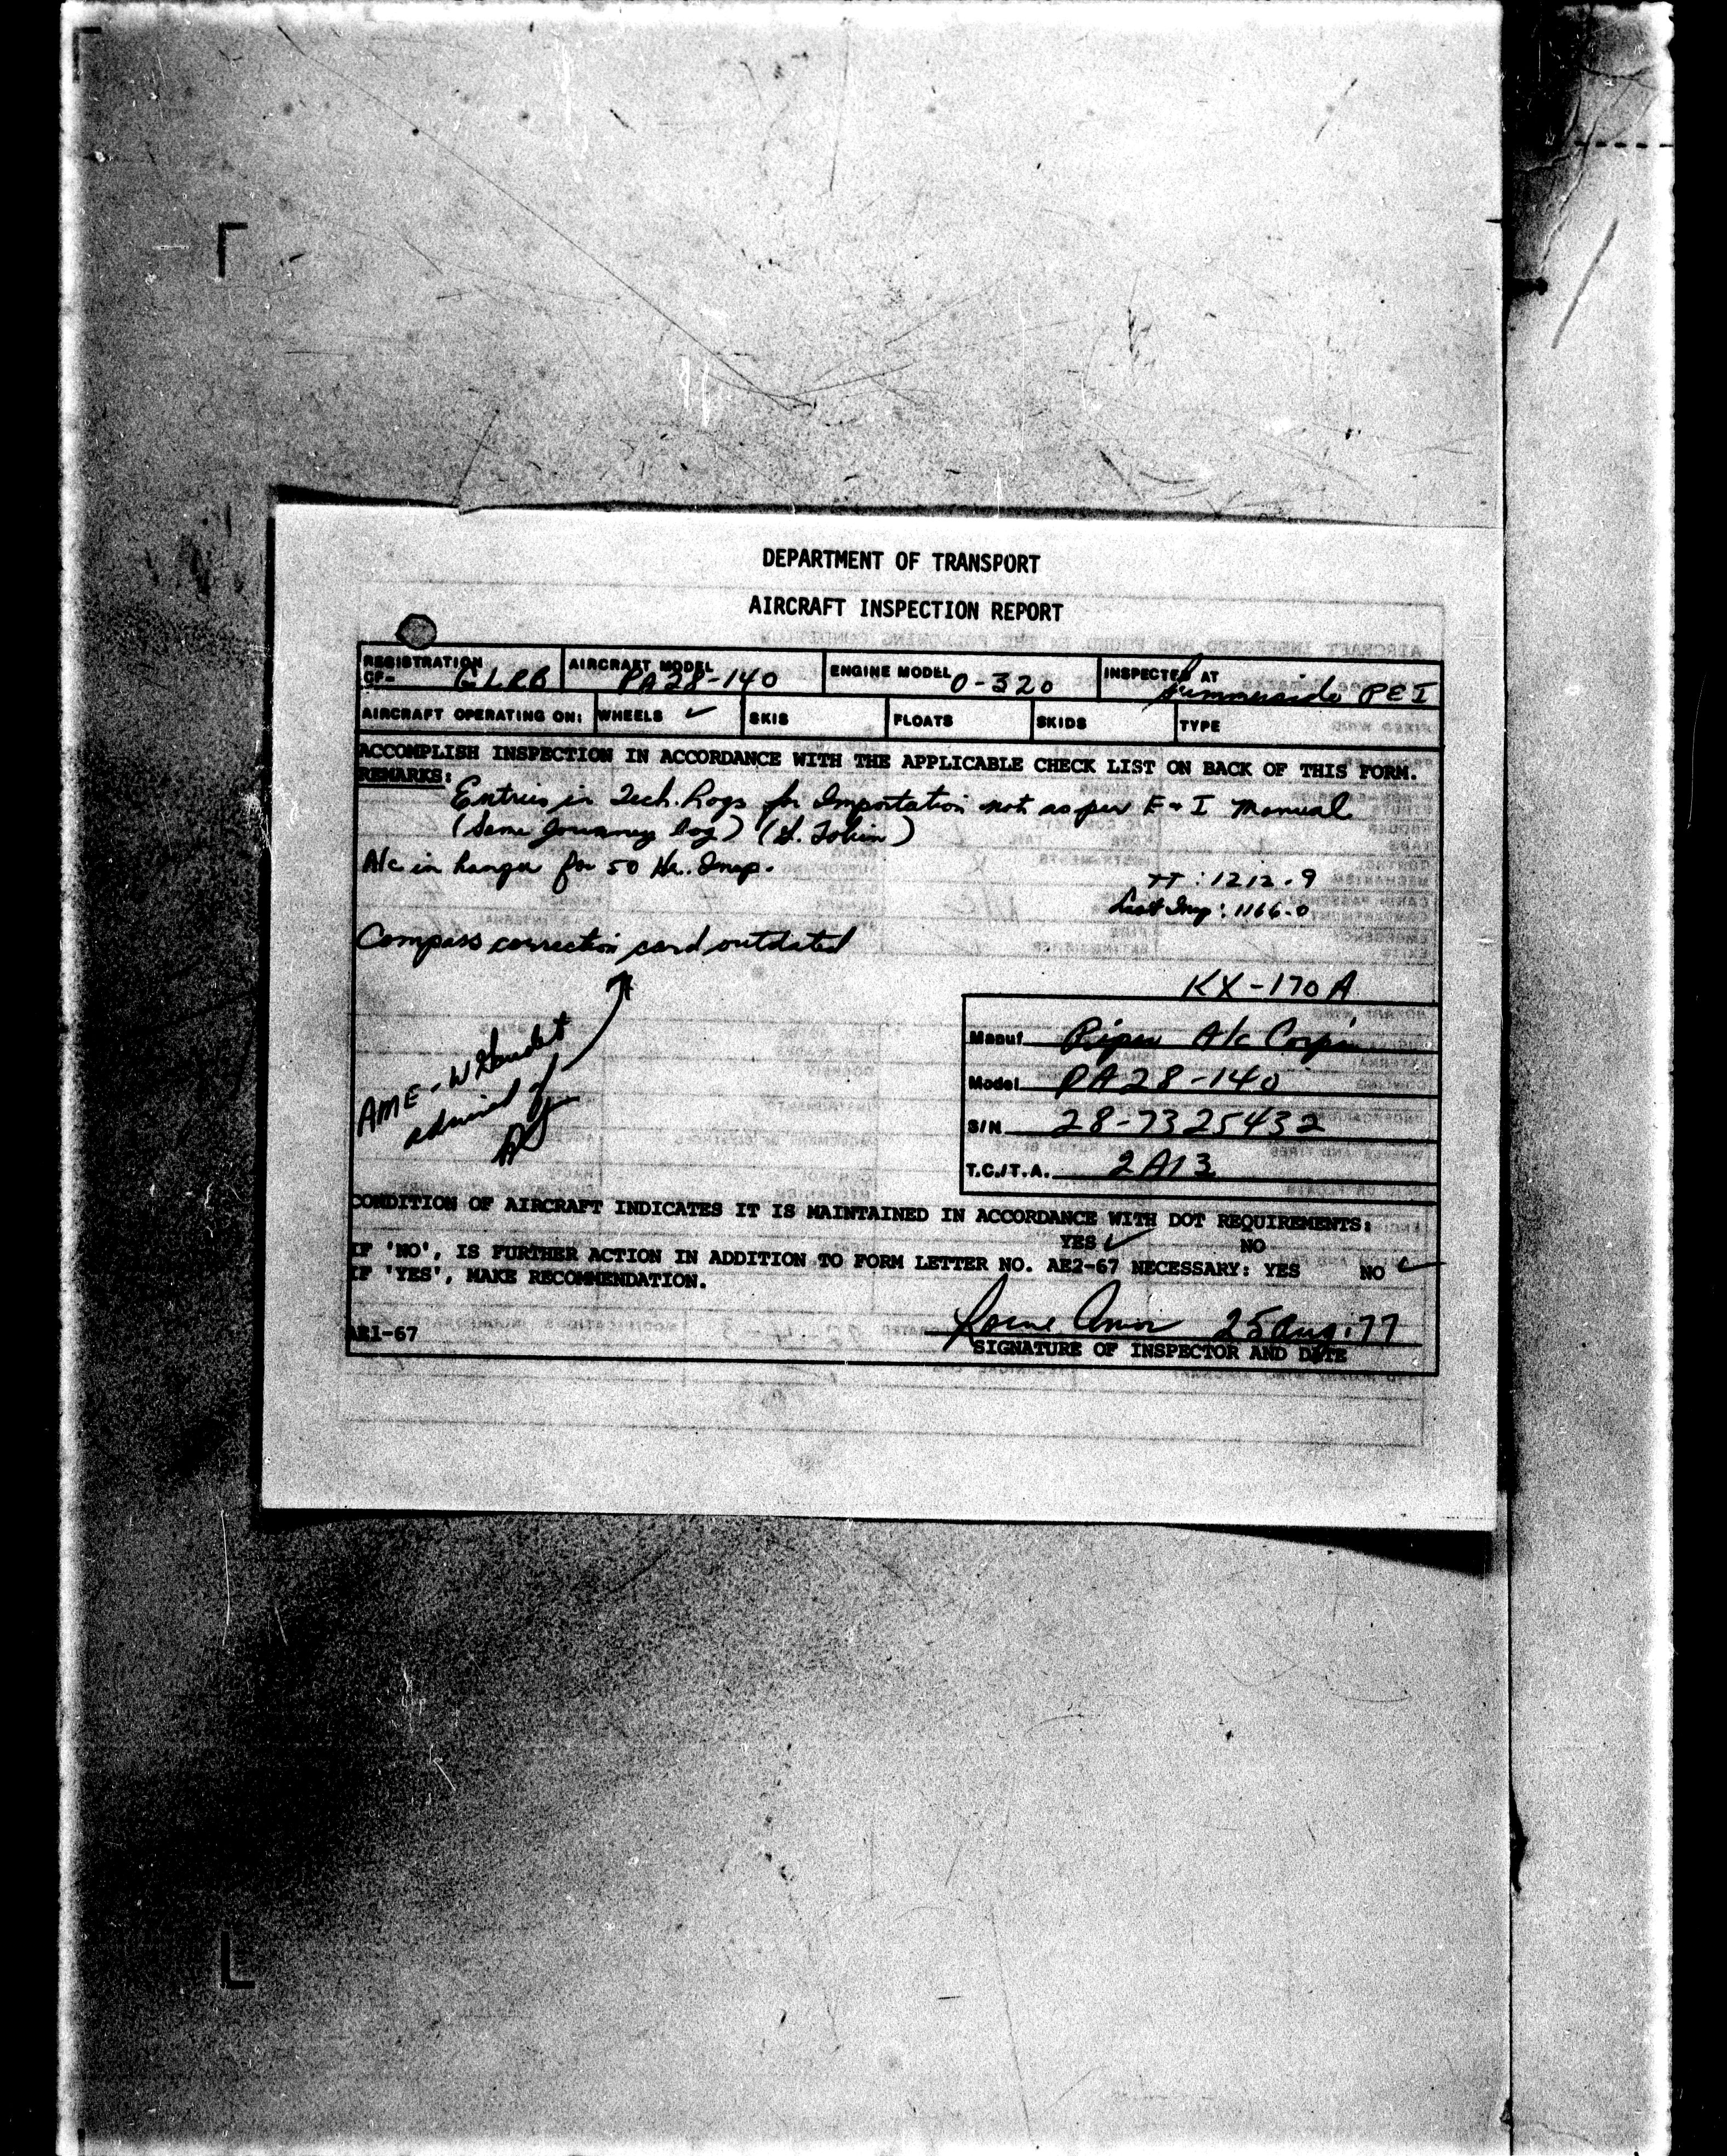 DEPARTMENT OF TRANSPORT
AIRCRAFT INSPECTION REPORT
REGISTRATION CF- GLRB AIRCRAFT MODEL PA28-140 ENGINE MODEL O-320 INSPECTED AT Summerside PEI
AIRCRAFT OPERATING ON: WHEELS ✓ SKIS FLOATS SKIDS TYPE
ACCOMPLISH INSPECTION IN ACCORDANCE WITH THE APPLICABLE CHECK LIST ON BACK OF THIS FORM.
REMARKS: Entries in Tech. Logs for Importation not as per E & I Manual
(Same Journey log) (Tobin)
A/c in hangar for 50 Hr. Insp.
TT: 1212.9
Last Insp: 1166.0
Compass correction card outdated
KX-170A
AME - W Gaudet
advised of
Manuf. Piper A/c Corp'n
Model PA28-140
S/N 28-7325432
T.C./T.A. 2A13
CONDITION OF AIRCRAFT INDICATES IT IS MAINTAINED IN ACCORDANCE WITH DOT REQUIREMENTS:
YES ✓ NO
IF 'NO', IS FURTHER ACTION IN ADDITION TO FORM LETTER NO. AE2-67 NECESSARY: YES NO ✓
IF 'YES', MAKE RECOMMENDATION.
25 Aug. 77
AE1-67
SIGNATURE OF INSPECTOR AND DATE